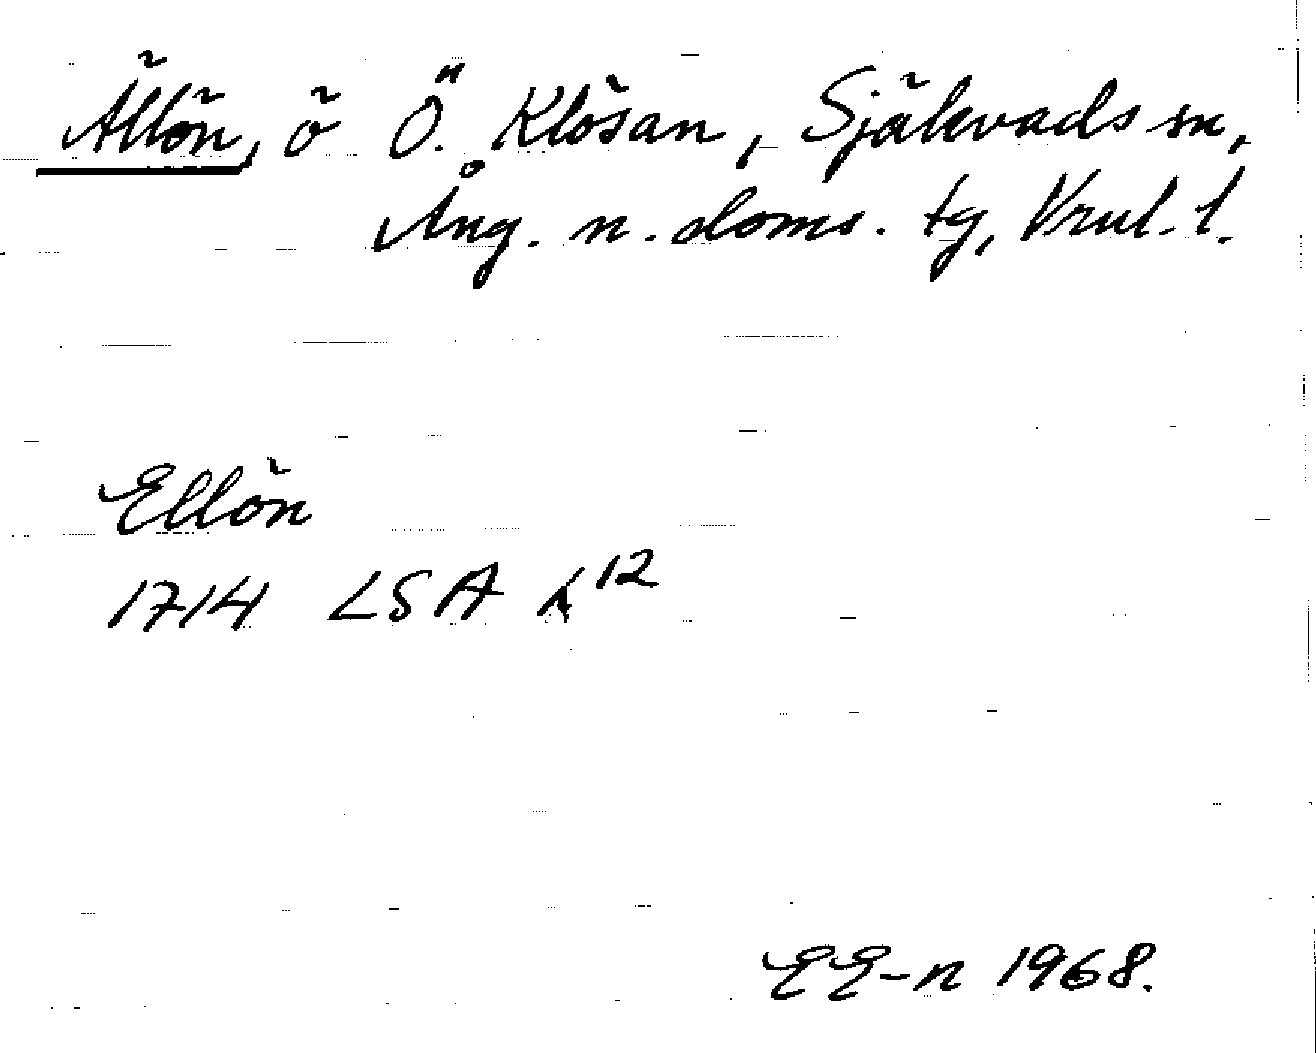 Ällön, ö Ö. Klösan, Själevads sn,
Ång. n. doms. tg, Vrnl. l.
Ellön
1714 LSA 12
EE-n 1968.